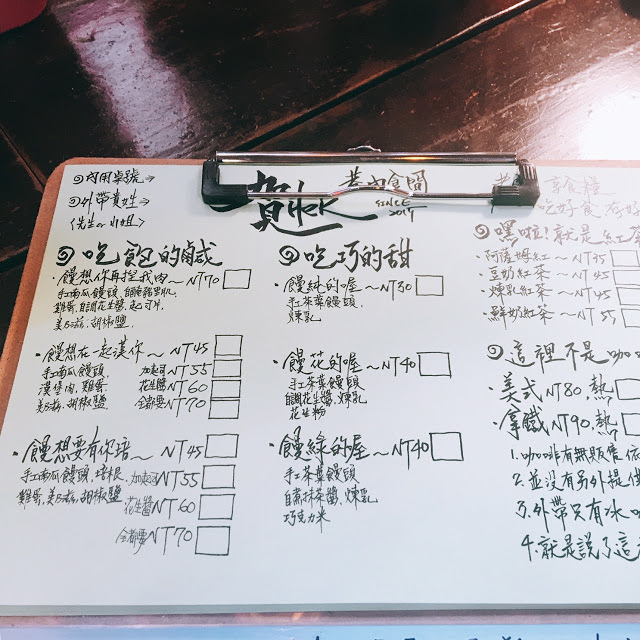 內用桌號→
外帶貴姓→
(先生or小姐)→
巷內食間
SINCE
吃飽的鹹
·饅想你再控我肉~NT70
手工南瓜饅頭、
雞蛋、自調花生醬、起司片、
美乃滋、胡椒鹽
·饅想在一起漢你~NT45
手工南瓜饅頭 加起司NT55
漢堡肉、雞蛋 花生醬NT60
美乃滋、胡椒鹽 全都要NT70
·饅想要有你培~NT45
手工南瓜饅頭、培根、加起司NT55
雞蛋、美乃滋、胡椒鹽 花生醬NT60
全都要NT70
吃巧的甜
·饅綠的喔~NT30
手工茶葉饅頭
煉乳
·饅花的喔~NT40
手工茶葉饅頭
自調花生醬、煉乳
花生粉
·饅綠的屋~NT40
手工茶葉饅頭
自煮抹茶醬、煉乳
巧克力米
享食糧
吃好食在好
嘿啦!就是紅茶
·阿薩姆紅~NT35
·豆奶紅茶~NT45
·煉乳紅茶~NT45
·鮮奶紅茶~NT55
這裡不是咖
·美式NT80,熱
·拿鐵NT90,熱
1.咖啡有無販售依
2.並沒有另外提供
3.外帶只有冰
4.就是說了這